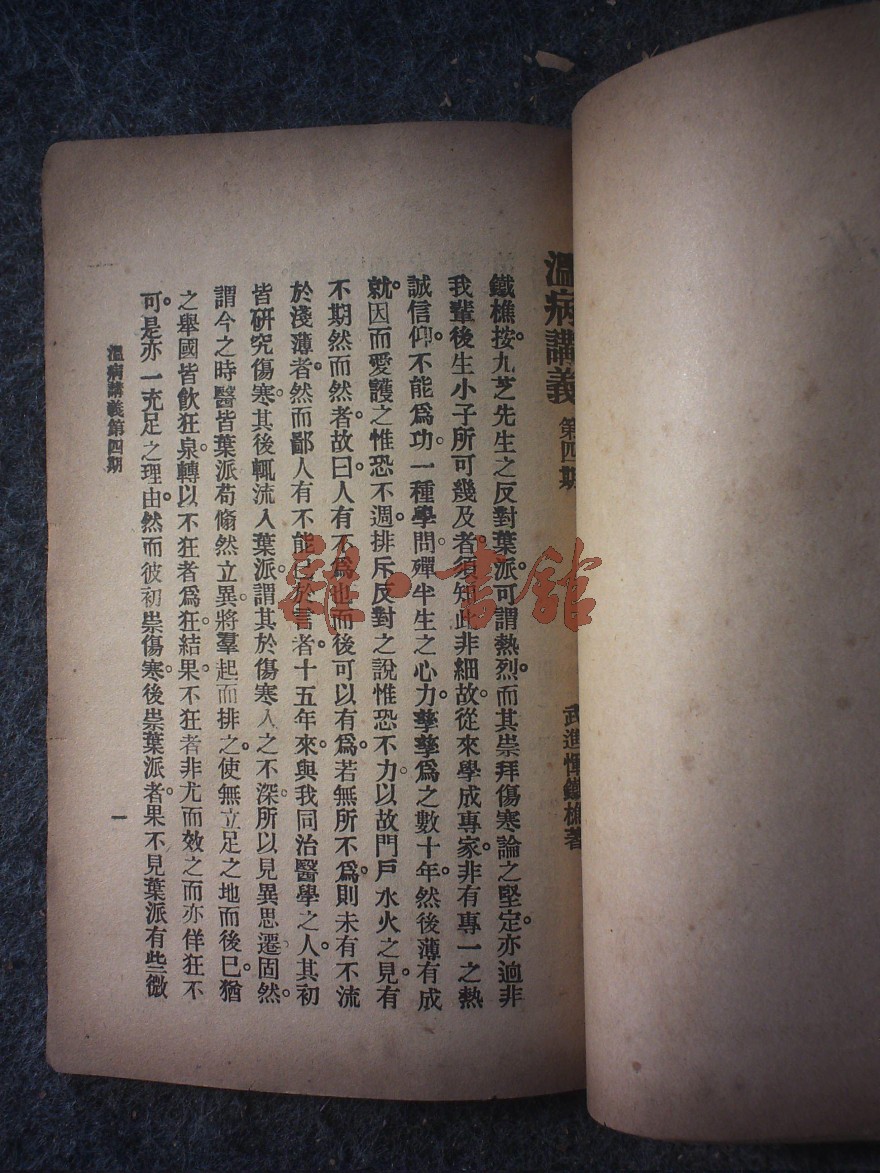 溫病講義 第四期
武進惲鐵樵著
鐵樵按。九芝先生之反對葉派。可謂熱烈。而其崇拜傷寒論之堅定。亦迥非
我輩後生小子所可幾及者。須知此非細故。從來學成專家。非有專一之熱
誠信仰。不能爲功。一種學問。殫半生之心力。孳孳爲之數十年。然後薄有成
就。因而愛護之惟恐不週。排斥反對之說惟恐不力。以故門戶水火之見。有
不期然而然者。故曰。人有不爲也。而後可以有爲。若無所不爲。則未有不流
於淺薄者。然而鄙人有不能已於言者。十五年來。與我同治醫學之人。其初
皆研究傷寒。其後輒流入葉派。謂其於傷寒入之不深。所以見異思遷。固然。
謂今之時醫皆葉派。苟翛然立異。將羣起而排之。使無立足之地而後已。猶
之舉國皆飲狂泉。轉以不狂者爲狂。結果。不狂者非尤而效之而亦佯狂不
可。是亦一充足之理由。然而彼初崇傷寒。後崇葉派者。果不見葉派有些微
溫病講義第四期
一
雜·書館